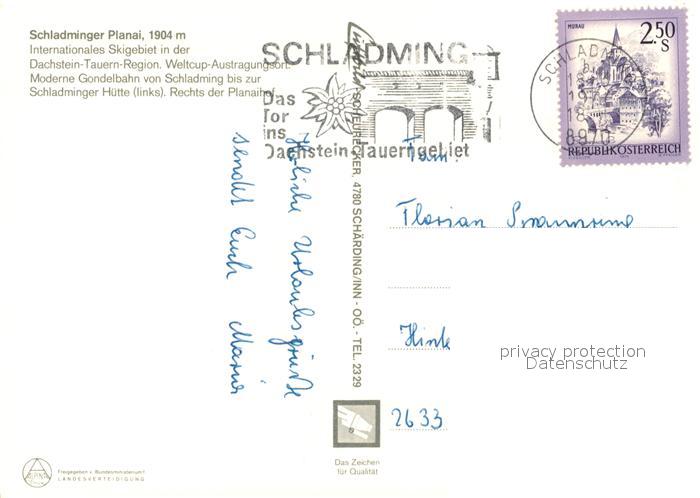 Schladminger Planai, 1904 m
Internationales Skigebiet in der
Dachstein-Tauern-Region. Weltcup-Austragungsort.
Moderne Gondelbahn von Schladming bis zur
Schladminger Hütte (links). Rechts der Planaihof.
SCHLADMING
Das
Tor
ins
Dachstein-Tauerngebiet
MURAU
2.50
S
REPUBLIK ÖSTERREICH
SCHLADMING
8970
Herzliche Urlaubsgrüße
sendet Euch Maria
SCHEURECKER, 4780 SCHÄRDING/INN - OÖ. - TEL. 2329
Fam
Florian
2633
privacy protection
Datenschutz
Das Zeichen
für Qualität
ALPINA
Freigegeben v. Bundesministerium f.
LANDESVERTEIDIGUNG